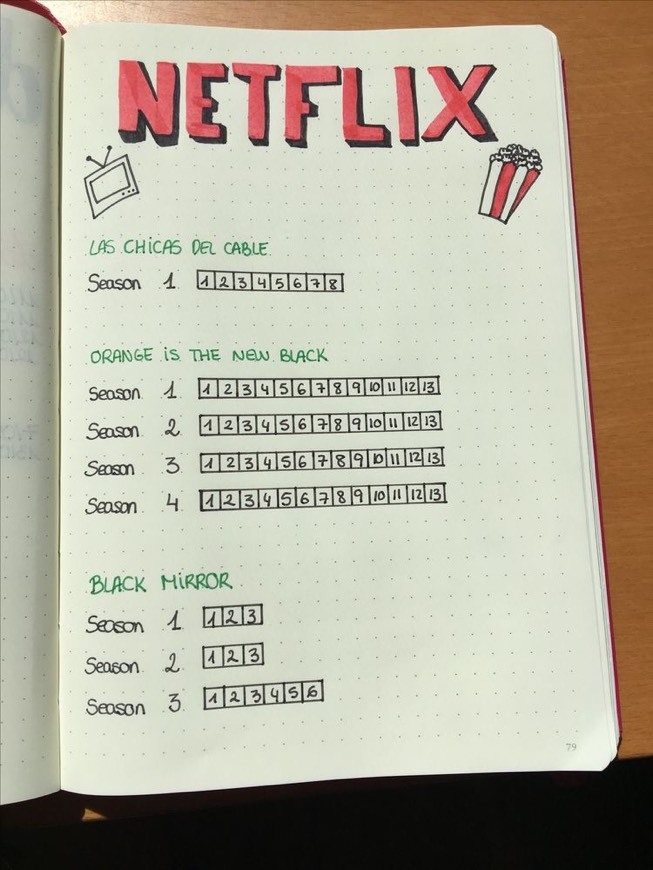 NETFLIX
LAS CHICAS DEL CABLE
Season 1 1 2 3 4 5 6 7 8
ORANGE iS THE NEW BLACK
Season 1 1 2 3 4 5 6 7 8 9 10 11 12 13
Season 2 1 2 3 4 5 6 7 8 9 10 11 12 13
Season 3 1 2 3 4 5 6 7 8 9 10 11 12 13
Season 4 1 2 3 4 5 6 7 8 9 10 11 12 13
BLACK MiRROR
Season 1 1 2 3
Season 2 1 2 3
Season 3 1 2 3 4 5 6
79